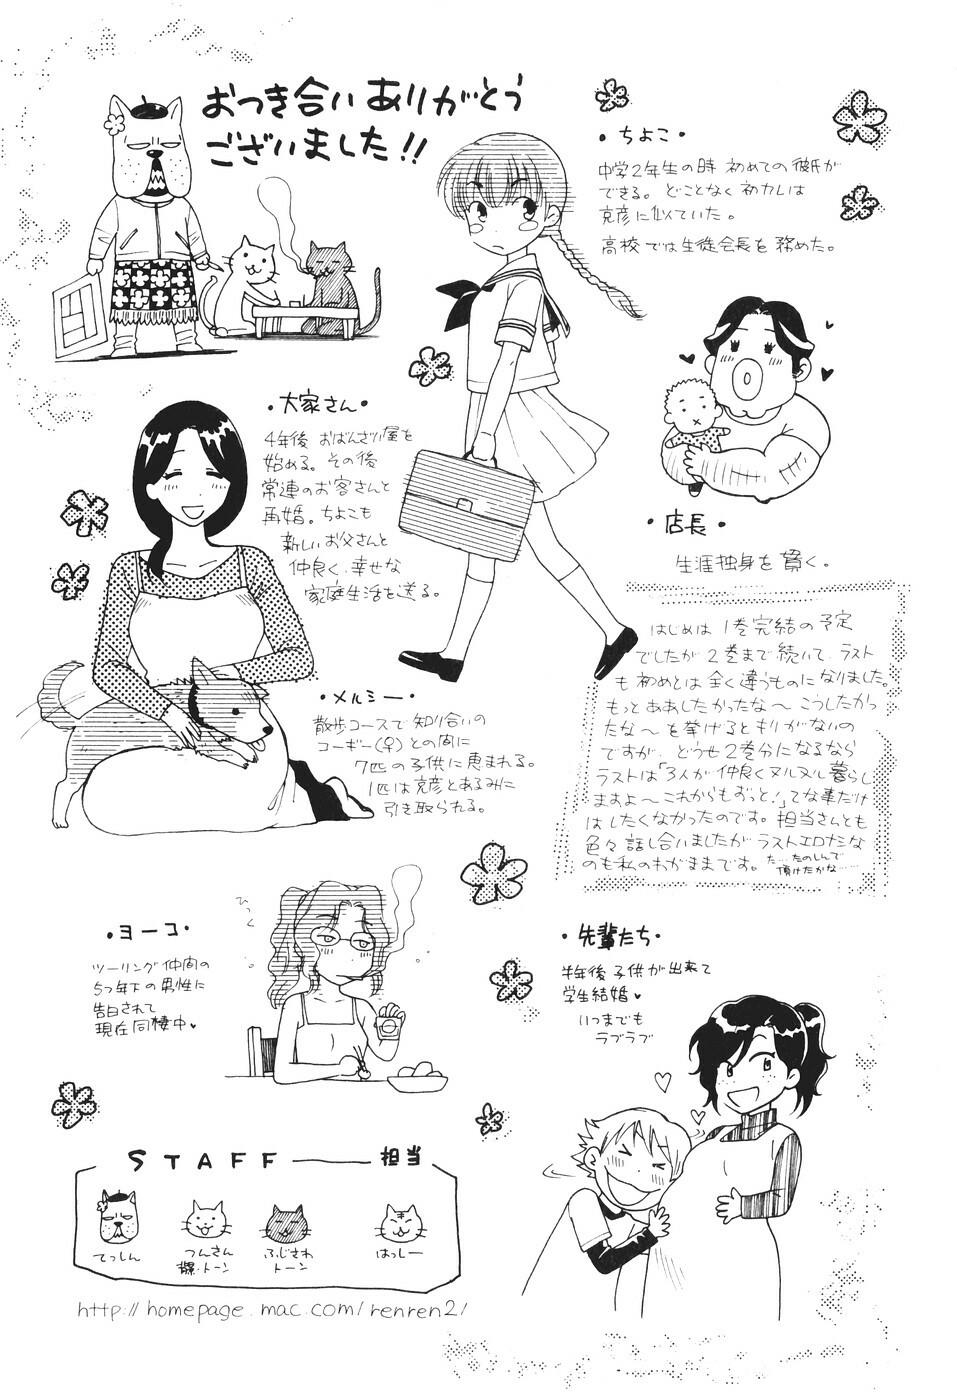 おつき合い ありがとう
ございました!!
・ちよこ・
中学2年生の時 初めての彼氏が
できる。どことなく初カレは
克彦に似ていた。
高校では生徒会長を務めた。
・大家さん・
4年後 おばんざい屋を
始める。その後
常連のお客さんと
再婚。ちよこも
新しいお父さんと
仲良く、幸せな
家庭生活を送る。
・店長・
生涯独身を貫く。
はじめは 1巻完結の予定
でしたが 2巻まで続いて、ラスト
も初めとは全く違うものになりました。
もっとああしたかったな〜 こうしたかっ
たな〜 を挙げるとキリがないの
ですが、どうせ2巻分になるなら
ラストは「3人が仲良くヌルヌル暮らし
ますよ〜これからもずっと!」てな事だけ
はしたくなかったのです。担当さんとも
色々話し合いましたが ラストエロナシな
のも私のわがままです。た…たのしんで
頂けたかな……
・メルシー・
散歩コースで知り合いの
コーギー(♀)との間に
7匹の子供に恵まれる。
1匹は克彦とあるみに
引き取られる。
・ヨーコ・
ツーリング仲間の
5つ年下の男性に
告白されて
現在同棲中♥
ひっく
・先輩たち・
半年後 子供が出来て
学生結婚♥
いつまでも
ラブラブ
STAFF
担当
てっしん
つんさん
トーン
ふじさわ
トーン
はっしー
http://homepage.mac.com/renren2/